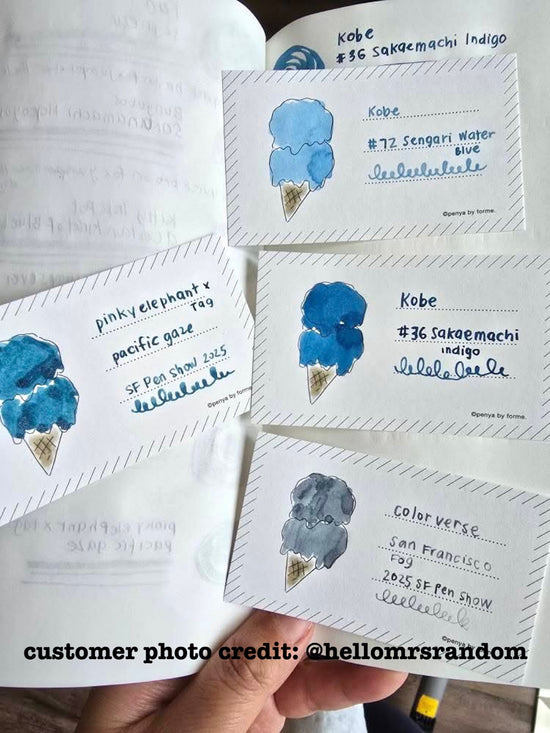 Kobe
#36 Sakaemachi Indigo
Kobe
#72 Sengari Water
Blue
©penya by forme.
pinky elephant x
Tag
pacific gaze
SF Pen Show 2025
©penya by forme.
Kobe
#36 Sakaemachi
indigo
©penya by forme.
color verse
San Francisco
Fog
2025 SF Pen Show
©penya by
pinky elephant x tag
pacific gaze
customer photo credit: @hellomrsrandom